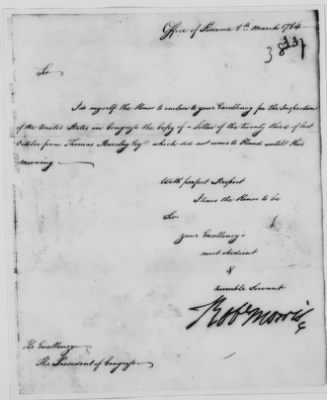 Office of Finance 8th March 1784
Sir
I do myself the Honor to enclose to your Excellency for the Inspection
of the United States in Congress the Copy of a Letter of the twenty third of last
October from Thomas Barclay Esqr. which did not come to Hand untill this
morning
With perfect Respect
I have the Honor to be
Sir
your Excellency's
most obedient
&
humble Servant
Robt Morris
His Excellency
The President of Congress